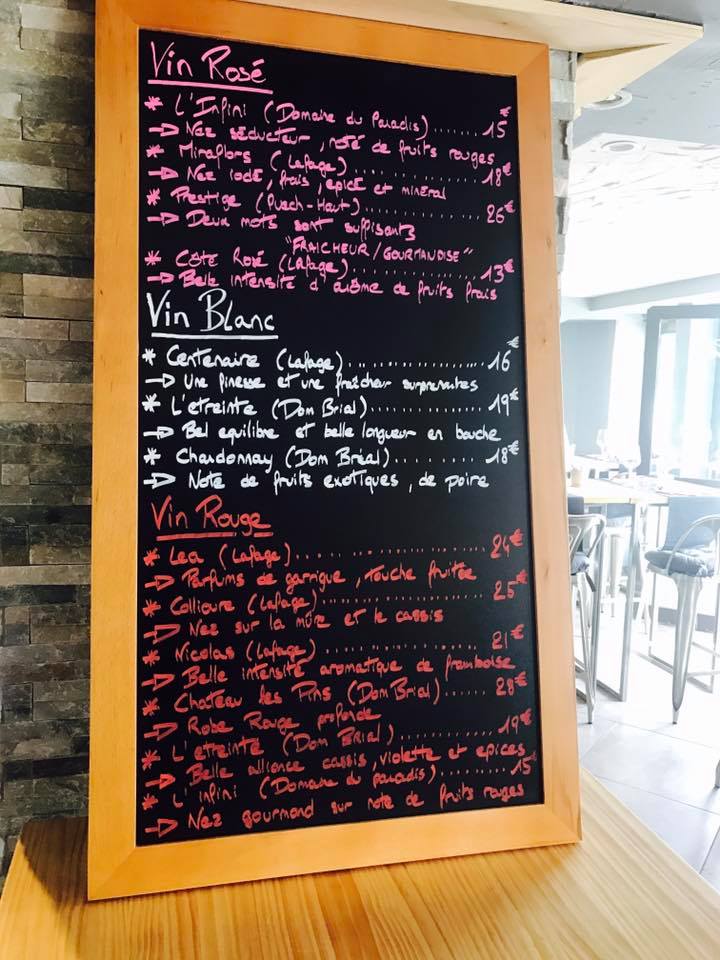 Vin Rosé
* L'Infini (Domaine du Paradis)....... 15€
→ Nez séducteur, noté de fruits rouges
* Miraflors (Lafage)............. 18€
→ Nez iodé, frais, epicé et minéral
* Prestige (Puech-Haut)............. 26€
→ Deux mots sont suffisants
"FRAICHEUR/GOURMANDISE"
* Côté Rosé (Lafage)............. 13€
→ Belle intensité d'arôme de fruits frais
Vin Blanc
* Centenaire (Lafage)................... 16€
→ Une finesse et une fraîcheur surprenantes
* L'etreinte (Dom Brial)............... 19€
→ Bel equilibre et belle longueur en bouche
* Chardonnay (Dom Bréal)........... 18€
→ Note de fruits exotiques, de poire
Vin Rouge
* Lea (Lafage)................... 24€
→ Parfums de garrigue, touche fruitée
* Collioure (Lafage)............... 25€
→ Nez sur la mûre et le cassis
* Nicolas (Lafage)............... 21€
→ Belle intensité aromatique de framboise
* Chateau les Pins (Dom Brial)...... 28€
→ Robe Rouge profonde
* L'etreinte (Dom Brial)........... 19€
→ Belle alliance cassis, violette et epices
* L'infini (Domaine du paradis)........ 15€
→ Nez gourmand sur note de fruits rouges